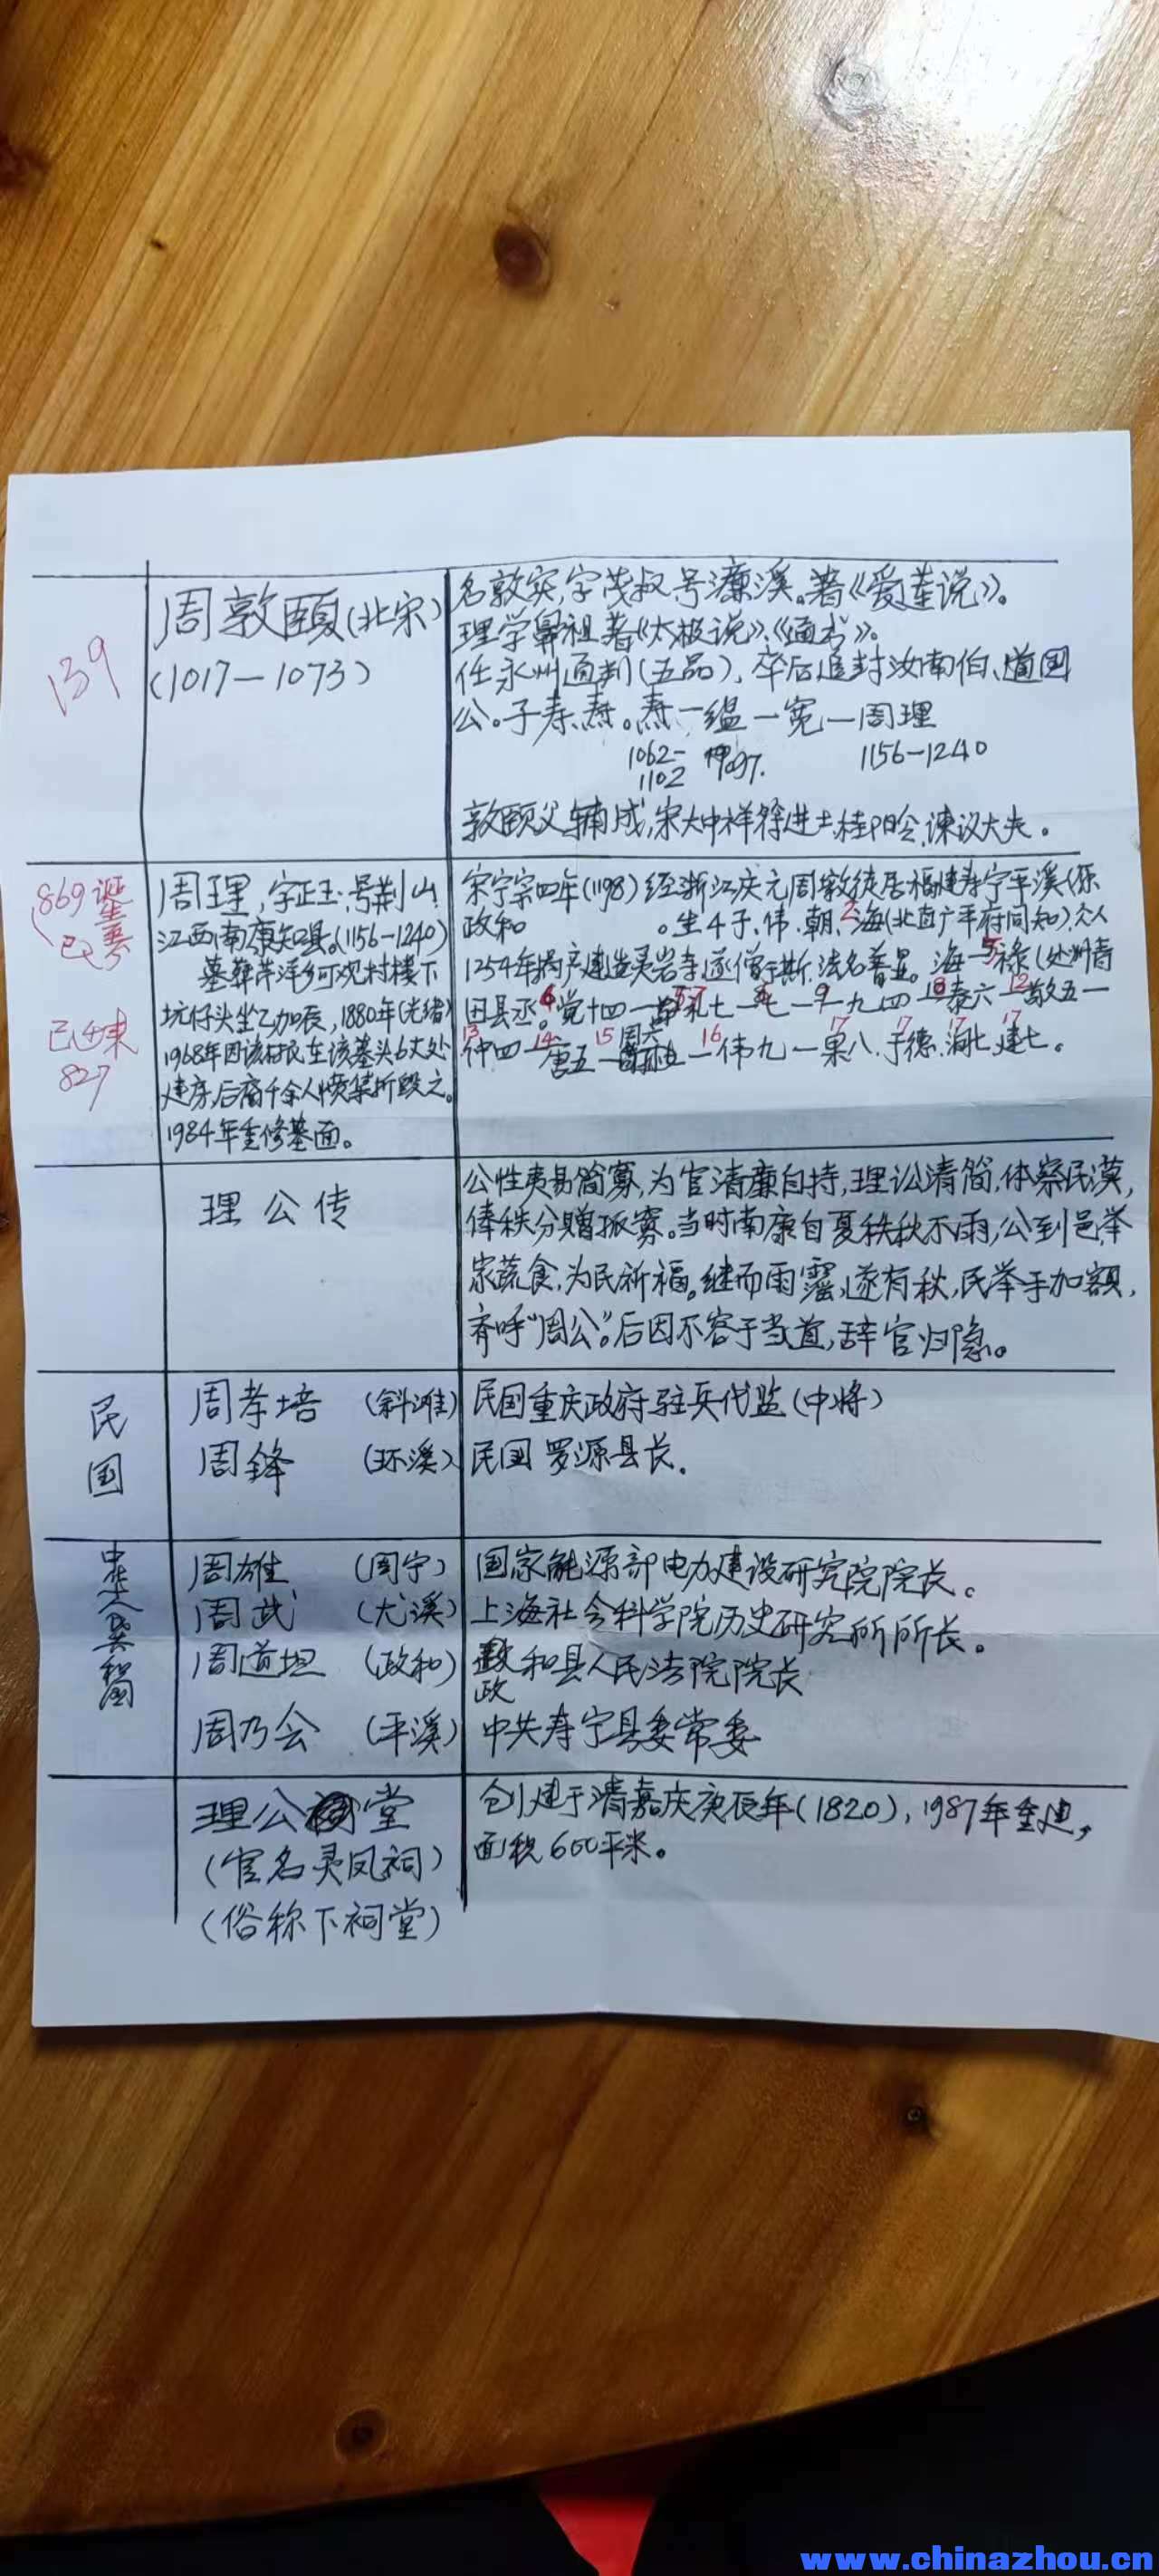 139
周敦頤(北宋)
(1017—1073)
名敦实,字茂叔号濂溪。著《爱莲说》。
理学鼻祖著《太极说》、《通书》。
任永州通判(五品),卒后追封汝南伯、道国
公。子寿、焘。焘一缊一宽一周理
1062-1102 1097. 1156—1240
敦颐父辅成,宋大中祥符进士桂阳令,谏议大夫。
869诞
生
己
己未
827
周理,字正玉,号荆山
江西南康知县。(1156—1240)
墓葬芹洋乡可观村楼下
坑仔头坐乙加辰,1880年(光绪)
1968年因该村民在该墓头6丈处
建房,后裔千余人愤集拆毁之。
1984年重修墓面。
宋宁宗四年(1198)经浙江庆元周墩徒居福建寿宁平溪(原
政和 。生4子、伟、朝、海(北直广平府同知)、众人
1254年捐产建造灵岩寺,遂僧于斯,法名普显。海一禄(处州青
田县丞。党十四一 礼七一七一九四一泰六一敬五一
仲四一唐五一 一伟九一果八、于德、海七、建七。
理公传
公性夷易简寡,为官清廉自持,理讼清简,体察民漠,
俸秩分赠孤寡。当时南康自夏秩秋不雨,公到邑,举
家蔬食,为民祈福。继而雨霪,遂有秋,民举手加额,
齐呼“周公”。后因不容于当道,辞官归隐。
民国
周孝培 (斜滩) 民国重庆政府驻兵代监(中将)
周鋒 (环溪) 民国罗源县长.
中华人民共和国
周雄 (周宁) 国家能源部电力建设研究院院长。
周武 (尤溪) 上海社会科学院历史研究所所长。
周道坦 (政和) 政和县人民法院院长
周乃会 (平溪) 中共寿宁县委常委
理公堂
(官名灵凤祠)
(俗称下祠堂)
创建于清嘉庆庚辰年(1820),1987年重建,
面积600平米。
www.chinazhou.cn